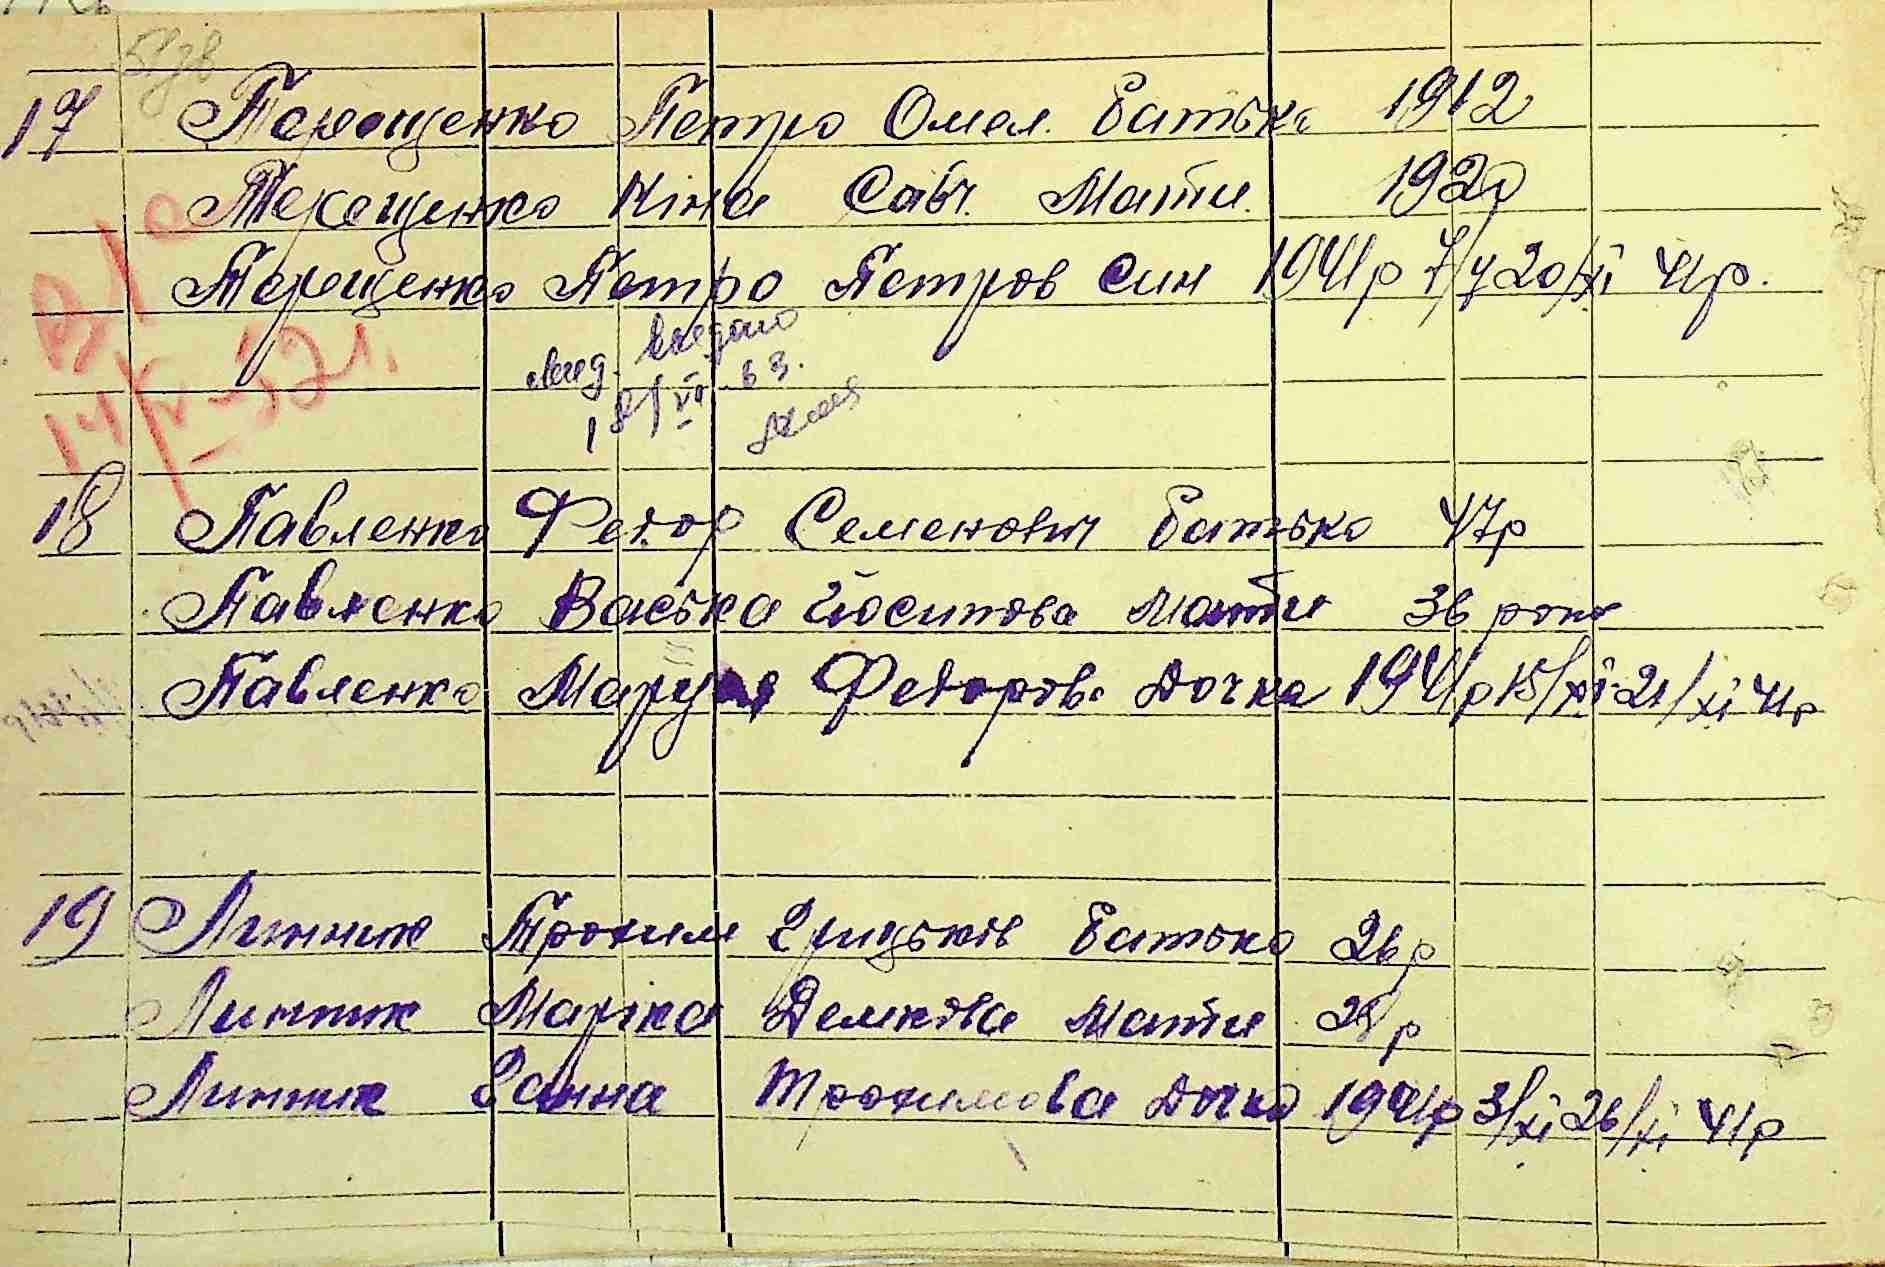 17 Терещенко Петро Омел. батько 1912
Терещенко Ніна Сав. Мати 1920
Терещенко Петро Петров син 1941р 7/V 20/XI 41р.
В/о
14/V-52г.
видано
18/VI 63.
18 Павленко Федор Семенович батько 47р
Павленко Васька Йосипова Мати 36 роки
Павленко Маруся Федорова дочка 1941р 15/XI 21/XI 41р
19 Линник Трохим Грицьків батько 26р
Линник Марика Демкова Мати 25р
Линник Ганна Трохимова дочка 1941р 3/XI 26/XI 41р